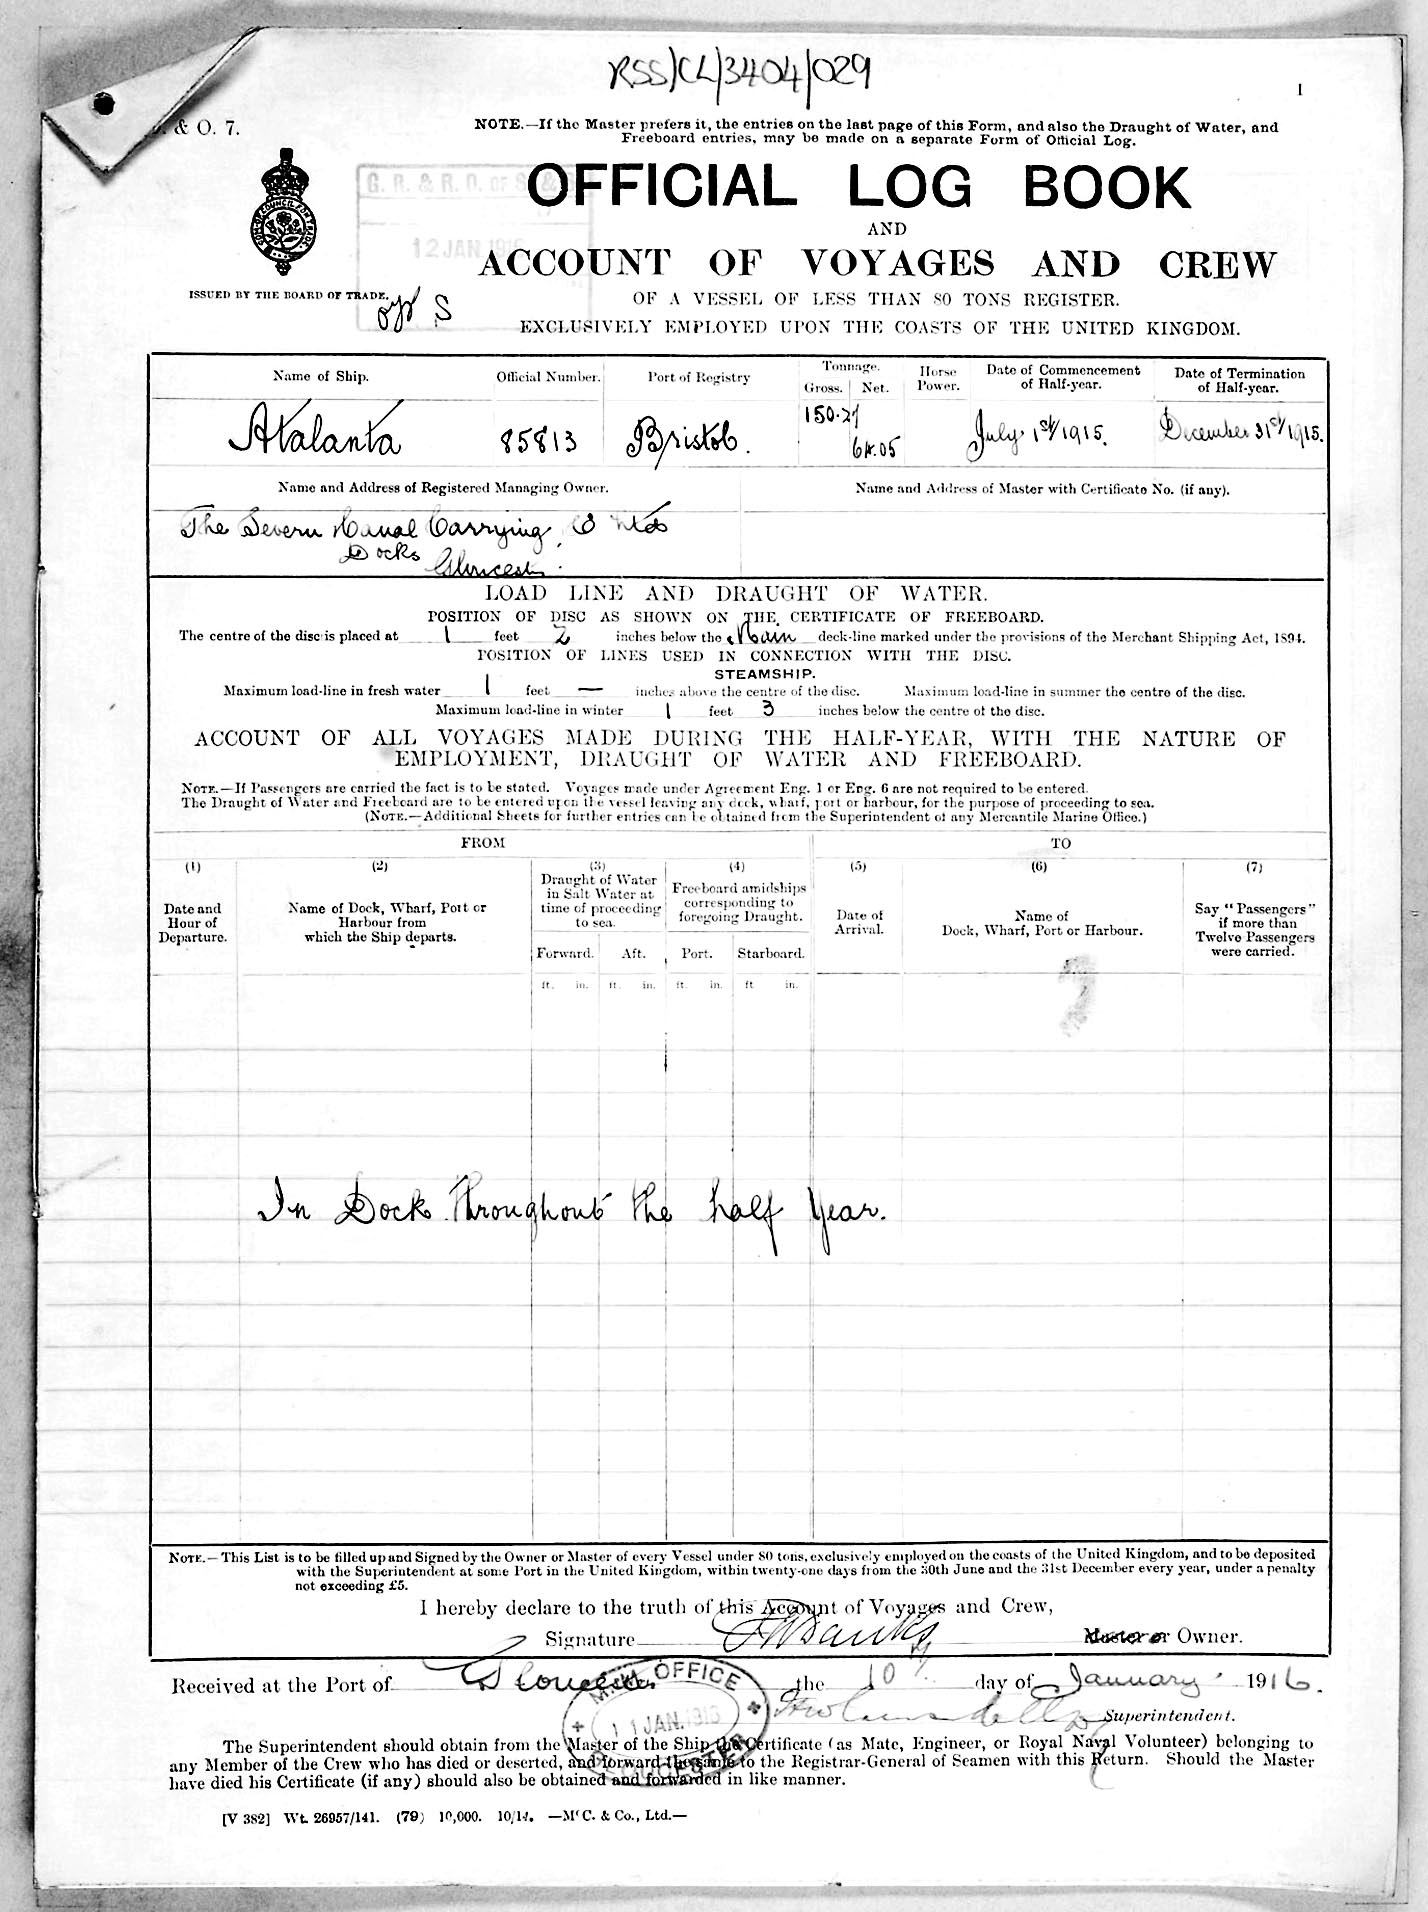 RSS/CL/3404/029
1
& O. 7.
NOTE.—If the Master prefers it, the entries on the last page of this Form, and also the Draught of Water, and
Freeboard entries, may be made on a separate Form of Official Log.
G. R. & R. O. OF S. & S.
12 JAN 1916
OFFICIAL LOG BOOK
AND
ACCOUNT OF VOYAGES AND CREW
ISSUED BY THE BOARD OF TRADE.
S
OF A VESSEL OF LESS THAN 80 TONS REGISTER.
EXCLUSIVELY EMPLOYED UPON THE COASTS OF THE UNITED KINGDOM.
Name of Ship. Official Number. Port of Registry Tonnage. Gross. Net. Horse Power. Date of Commencement of Half-year. Date of Termination of Half-year.
Atalanta 85813 Bristol. 150.27 64.05 July 1st/1915. December 31st/1915.
Name and Address of Registered Managing Owner. Name and Address of Master with Certificate No. (if any).
The Severn Canal Carrying Co Ltd
Docks
Gloucester
LOAD LINE AND DRAUGHT OF WATER.
POSITION OF DISC AS SHOWN ON THE CERTIFICATE OF FREEBOARD.
The centre of the disc is placed at 1 feet 2 inches below the Main deck-line marked under the provisions of the Merchant Shipping Act, 1894.
POSITION OF LINES USED IN CONNECTION WITH THE DISC.
STEAMSHIP.
Maximum load-line in fresh water 1 feet — inches above the centre of the disc. Maximum load-line in summer the centre of the disc.
Maximum load-line in winter 1 feet 3 inches below the centre of the disc.
ACCOUNT OF ALL VOYAGES MADE DURING THE HALF-YEAR, WITH THE NATURE OF
EMPLOYMENT, DRAUGHT OF WATER AND FREEBOARD.
NOTE.—If Passengers are carried the fact is to be stated. Voyages made under Agreement Eng. 1 or Eng. 6 are not required to be entered.
The Draught of Water and Freeboard are to be entered upon the vessel leaving any dock, wharf, port or harbour, for the purpose of proceeding to sea.
(NOTE.—Additional Sheets for further entries can be obtained from the Superintendent of any Mercantile Marine Office.)
FROM TO
(1) (2) (3) (4) (5) (6) (7)
Date and Hour of Departure.
Name of Dock, Wharf, Port or Harbour from which the Ship departs.
Draught of Water in Salt Water at time of proceeding to sea.
Freeboard amidships corresponding to foregoing Draught.
Date of Arrival.
Name of Dock, Wharf, Port or Harbour.
Say "Passengers" if more than Twelve Passengers were carried.
Forward. Aft. Port. Starboard.
ft. in. ft. in. ft. in. ft in.
In Dock throughout the half Year.
NOTE.—This List is to be filled up and Signed by the Owner or Master of every Vessel under 80 tons, exclusively employed on the coasts of the United Kingdom, and to be deposited
with the Superintendent at some Port in the United Kingdom, within twenty-one days from the 30th June and the 31st December every year, under a penalty
not exceeding £5.
I hereby declare to the truth of this Account of Voyages and Crew,
Signature Banks Master or Owner.
Received at the Port of Gloucester the 10th day of January 1916.
Superintendent.
M.M. OFFICE
11 JAN. 1916
GLOUCESTER
The Superintendent should obtain from the Master of the Ship the Certificate (as Mate, Engineer, or Royal Naval Volunteer) belonging to
any Member of the Crew who has died or deserted, and forward the same to the Registrar-General of Seamen with this Return. Should the Master
have died his Certificate (if any) should also be obtained and forwarded in like manner.
[V 382] Wt. 26957/141. (79) 10,000. 10/14. —McC. & Co., Ltd.—